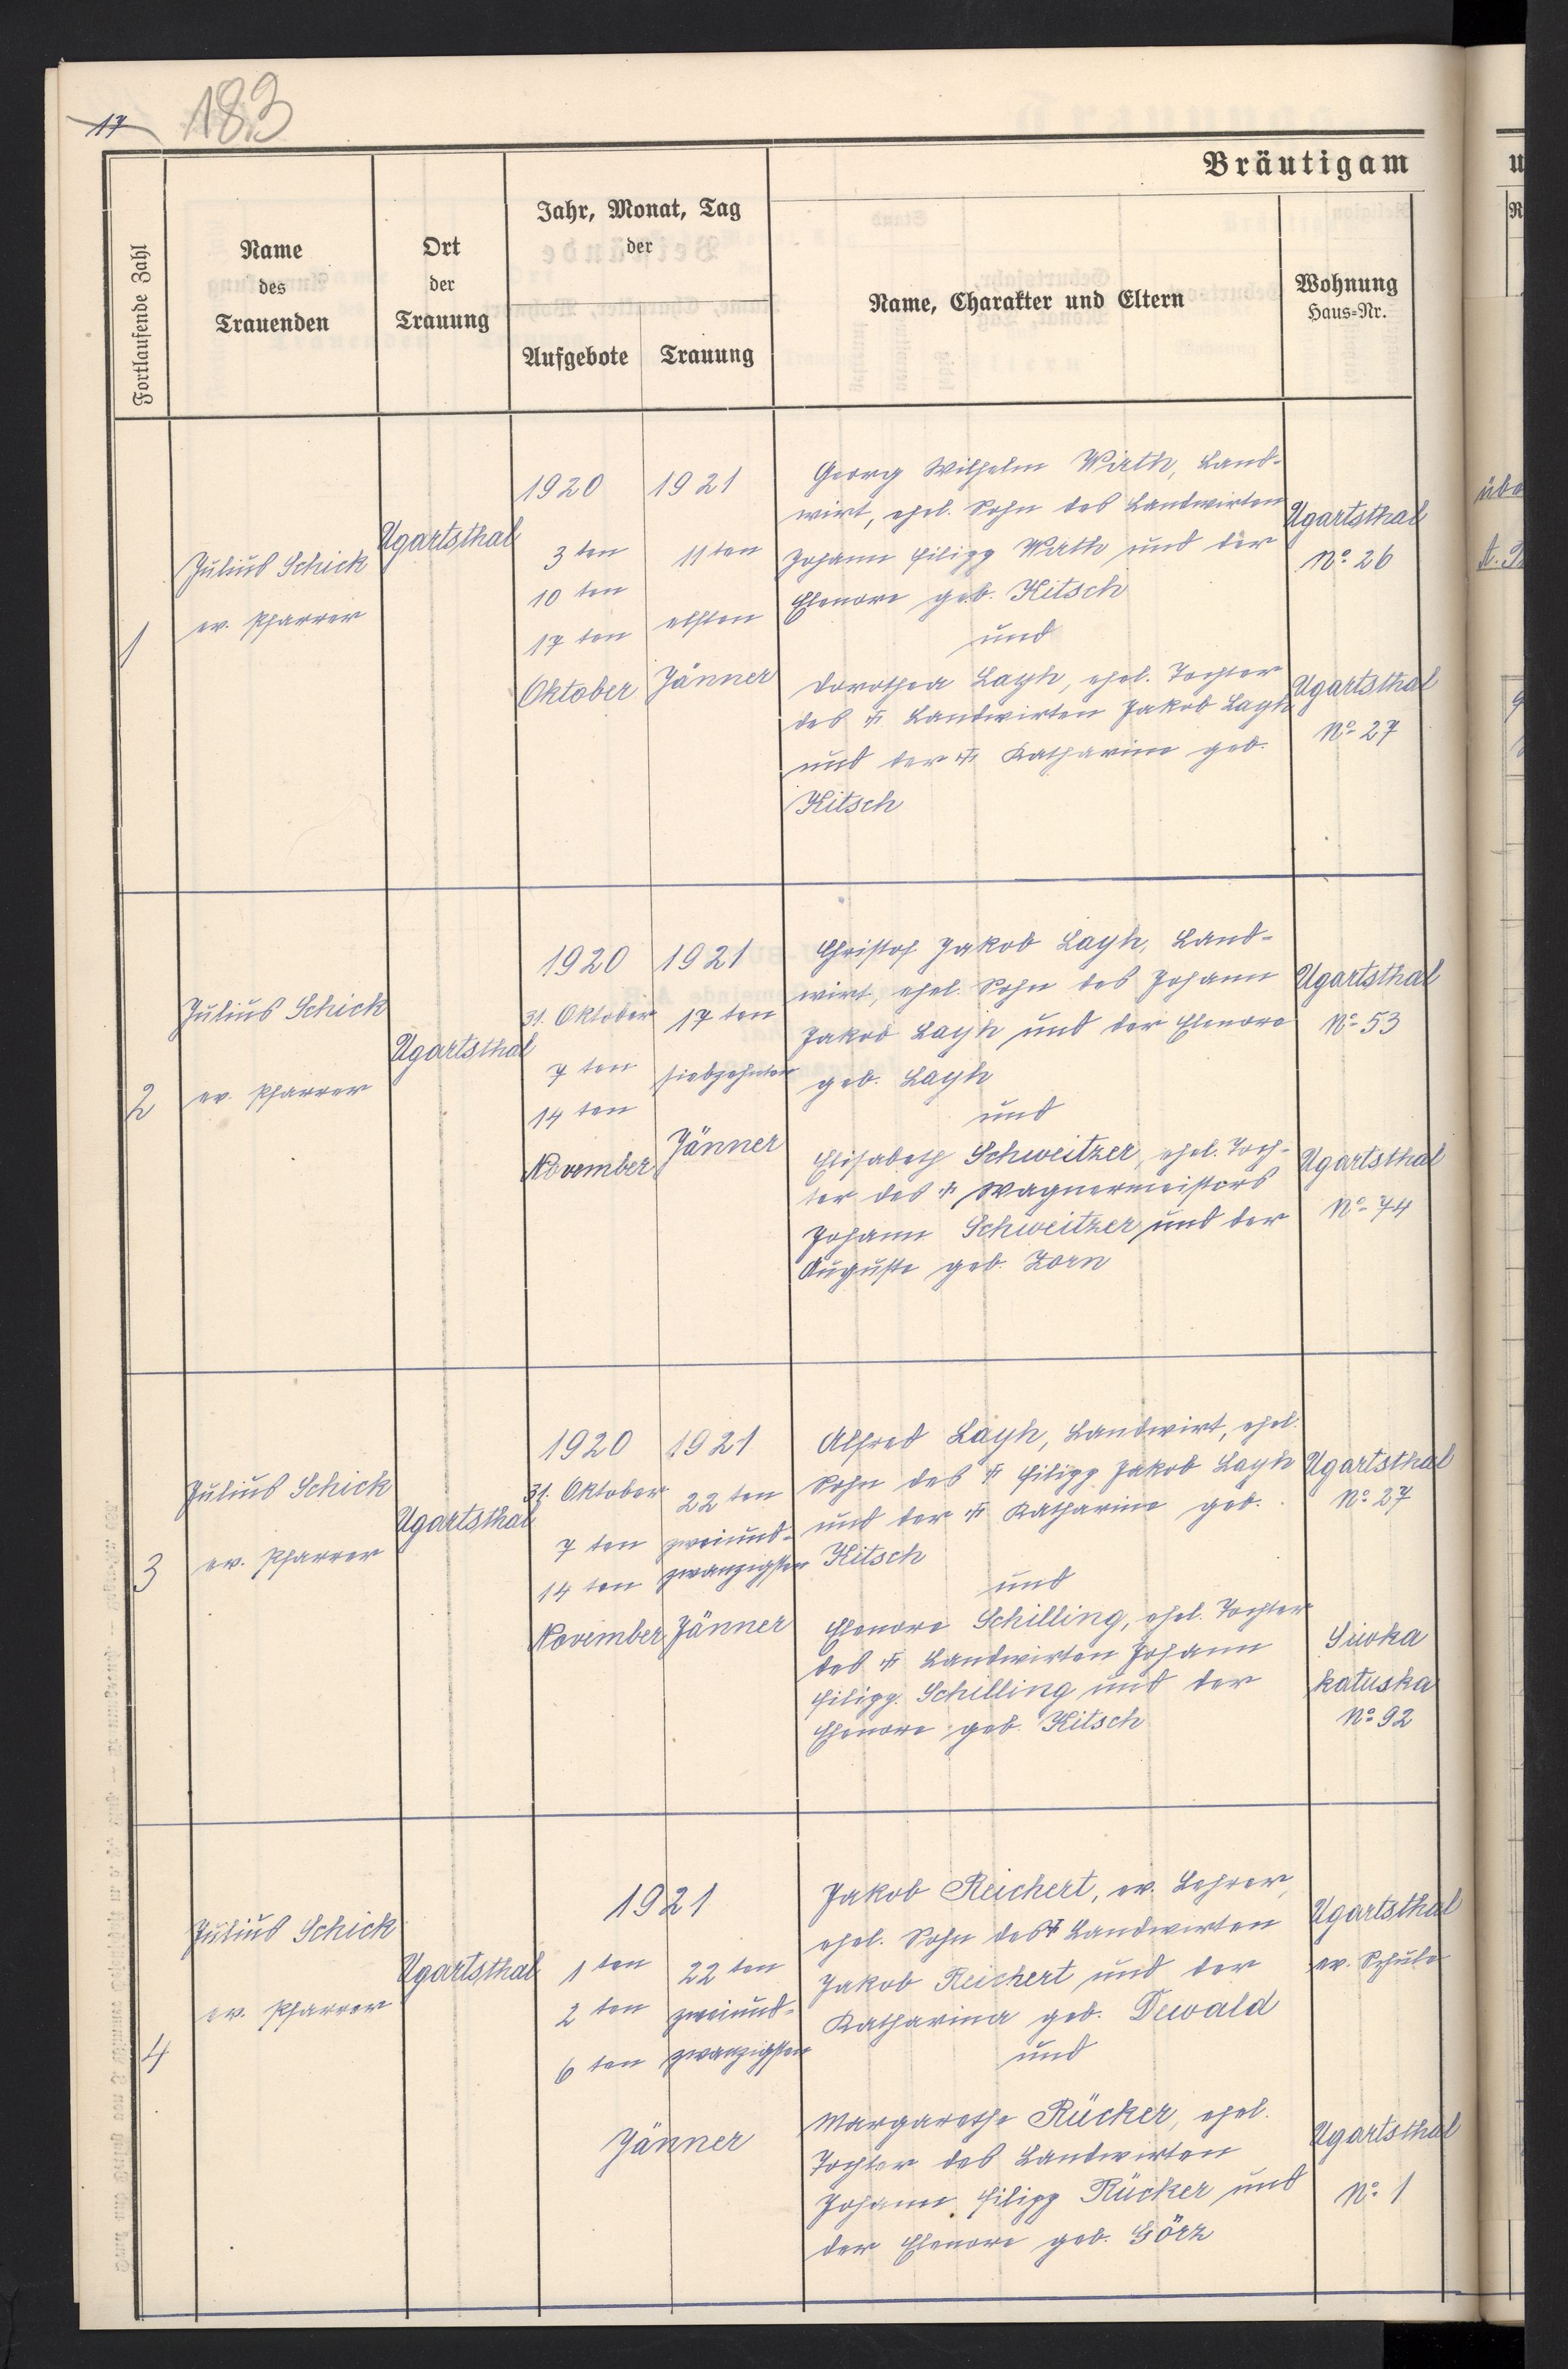 17 183
Bräutigam
Fortlaufende Zahl
Name
des
Trauenden
Ort
der
Trauung
Jahr, Monat, Tag
der
Aufgebote
Trauung
Name, Charakter und Eltern
Wohnung
Haus=Nr.
1
Julius Schick
ev. Pfarrer
Ugartsthal
1920
3 ten
10 ten
17 ten
Oktober
1921
11 ten
elften
Jänner
Georg Wilhelm Wirth, Land-
wirt, ehel. Sohn des Landwirten
Johann Filipp Wirth und der
Elenore geb. Kitsch
und
Dorothea Layh, ehel. Tochter
des † Landwirten Jakob Layh
und der † Katharine geb.
Kitsch
Ugartsthal
No 26
Ugartsthal
No 27
2
Julius Schick
ev. Pfarrer
Ugartsthal
1920
31. Oktober
7 ten
14 ten
November
1921
17 ten
siebzehnten
Jänner
Christof Jakob Layh, Land-
wirt, ehel. Sohn des Johann
Jakob Layh und der Elenore
geb. Layh
und
Elisabeth Schweitzer, ehel. Toch-
ter des † Wagnermeisters
Johann Schweitzer und der
Auguste geb. Zorn
Ugartsthal
No 53
Ugartsthal
No 74
3
Julius Schick
ev. Pfarrer
Ugartsthal
1920
31. Oktober
7 ten
14 ten
November
1921
22 ten
zweiund-
zwanzigsten
Jänner
Alfred Layh, Landwirt, ehel.
Sohn des † Filipp Jakob Layh
und der † Katharine geb.
Kitsch
und
Elenore Schilling, ehel. Tochter
des † Landwirten Johann
Filipp Schilling und der
Elenore geb. Kitsch
Ugartsthal
No 27
Siwka
katuska
No 92
4
Julius Schick
ev. Pfarrer
Ugartsthal
1921
1 ten
2 ten
6 ten
22 ten
zweiund-
zwanzigsten
Jänner
Jakob Reichert, ev. Lehrer,
ehel. Sohn des † Landwirten
Jakob Reichert und der
Katharina geb. Dewald
und
Margarethe Rücker, ehel.
Tochter des Landwirten
Johann Filipp Rücker und
der Elenore geb. Görz
Ugartsthal
ev. Schule
Ugartsthal
No 1